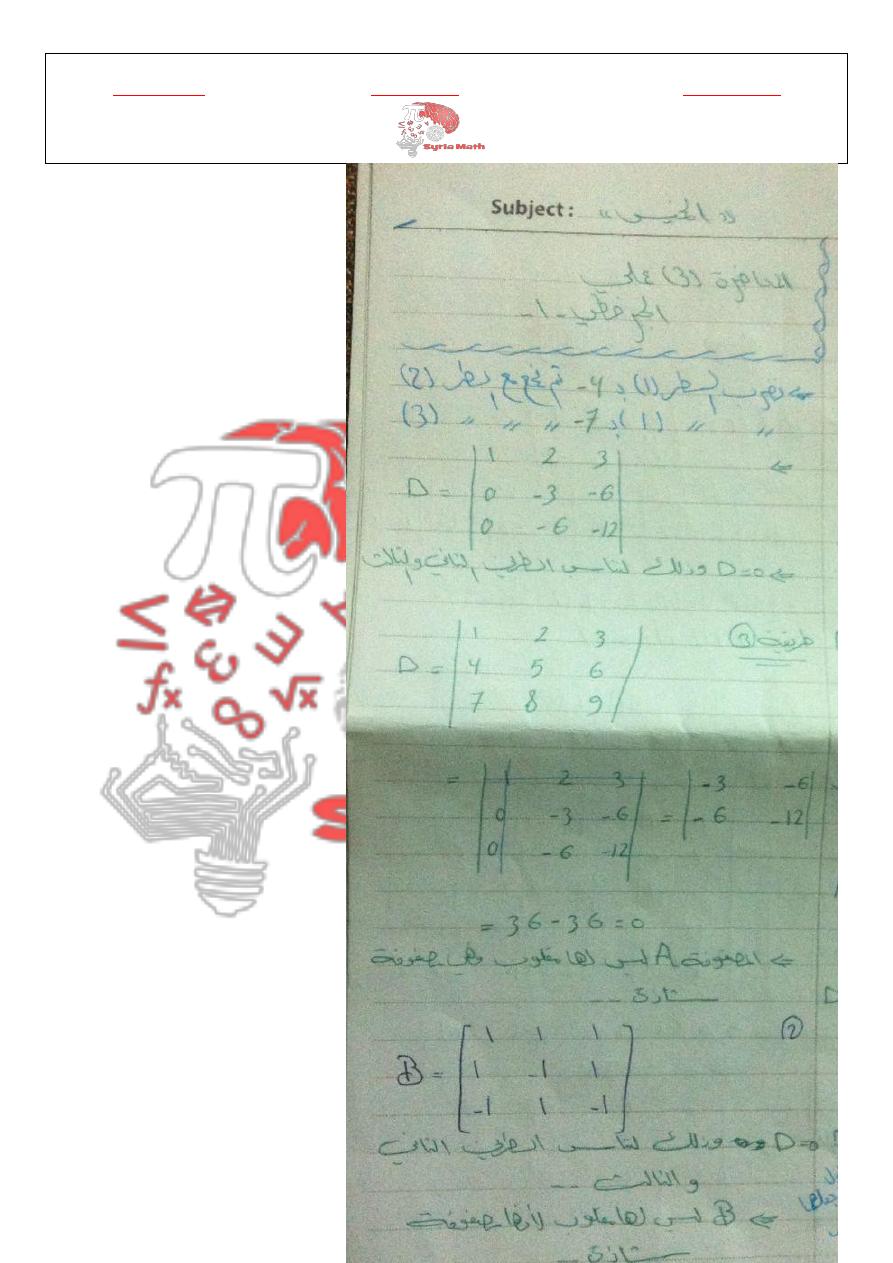 Syria Math
Subject: "الخميس"
المحاضرة (3) عملي
الجبر خطي -1-
⇐ نضرب السطر (1) بـ 4- ثم نجمع مع السطر (2)
" " (1) بـ 7- " " " (3)
⇐
D = | 1 2 3 |
| 0 -3 -6 |
| 0 -6 -12 |
⇐ D=0 وذلك لتناسب السطرين الثاني والثالث
طريقة ③
D = | 1 2 3 |
| 4 5 6 |
| 7 8 9 |
= | 1 2 3 |
| 0 -3 -6 | = | -3 -6 |
| 0 -6 -12 | | -6 -12 |
= 36-36=0
⇐ المصفوفة A ليس لها مقلوب وهي مصفوفة
شاذة ..
②
B = [ 1 1 1 ]
[ 1 -1 1 ]
[ -1 1 -1 ]
D=0 وذلك لتناسب السطرين الثاني
والثالث ..
⇐ B ليس لها مقلوب لأنها مصفوفة
شاذة ..